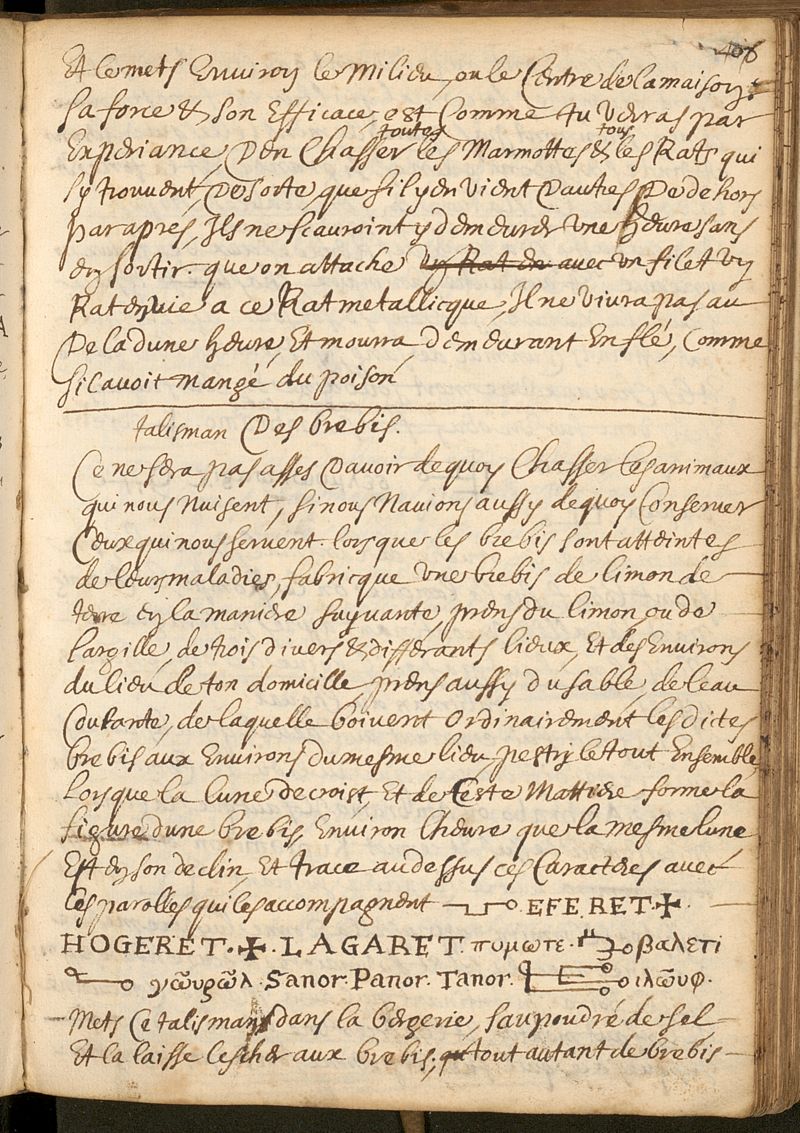 408
Et le mets Environ le Milieu, ou le Centre de la maison:
Sa force et son Efficace, est Comme tu verras par
Experiance, D'en Chasser toutes les Marmottes et tous les Rats qui
s'y trouvent, De sorte que s'il y en vient D'autres De dehors
par apres, Ils ne scauroint y demeurer une heure sans
en sortir. que on attache un Rat en avec un filet un
Rat en vie a ce Rat metallicque, Il ne vivra pas au
Dela d'une heure, Et mourra demeurant Enflé, Comme
s'il avoit mangé du poison
talisman Des brebis.
Ce ne sera pas asses D'avoir de quoy Chasser les animaux
qui nous Nuisent, si nous N'avions aussy de quoy Conserver
Ceux qui nous servent. lors que les brebis sont atteintes
de leurs maladies, fabricque une brebis de limon de
terre en la maniere suyvante, prens du limon, ou de
l'argille, de trois divers et differants lieux, Et des Environs
du lieu de ton domicille, prens aussy du sable de l'eau
Courante, de laquelle boivent ordinairement les dictes
brebis aux Environs du mesme lieu, pestry le tout Ensemble,
Lors que la lune decroist, Et de Ceste Mattiere forme la
figure d'une brebis, Environ l'heure que la mesme lune
Est en son declin, Et trace au dessus ces Caracteres avec
les parolles qui les accompagnent EFERET ✠.
HOGERET. ✠. LAGARET. πυμωτε. οβαλετι
γω̃υρω̃λ. Sanor. Panor. Tanor. οιλω̃υφ.
Mets Ce talisman dans la bergerie, saupoudré de sel
Et la laisse lescher aux brebis, qu tout autant de brebis